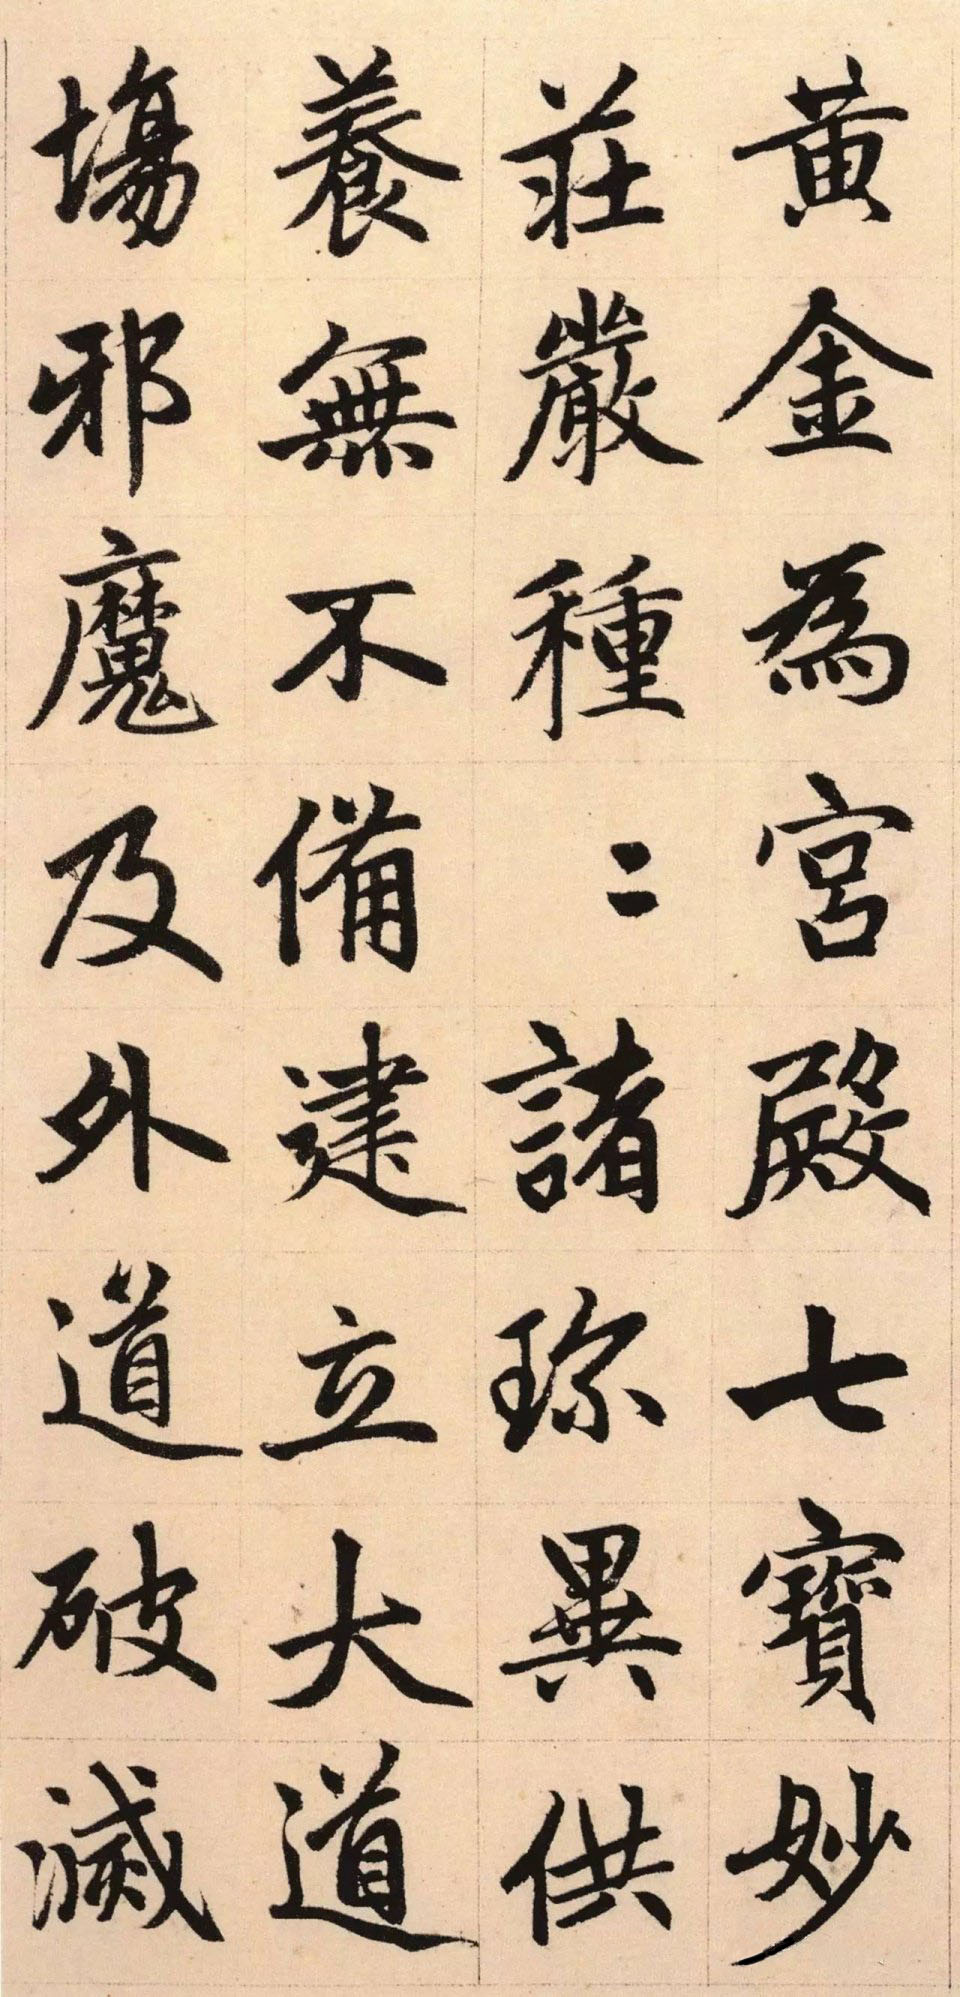 黃金為宮殿七寶妙
莊嚴種〻諸珎異供
養無不備建立大道
塲邪魔及外道破滅